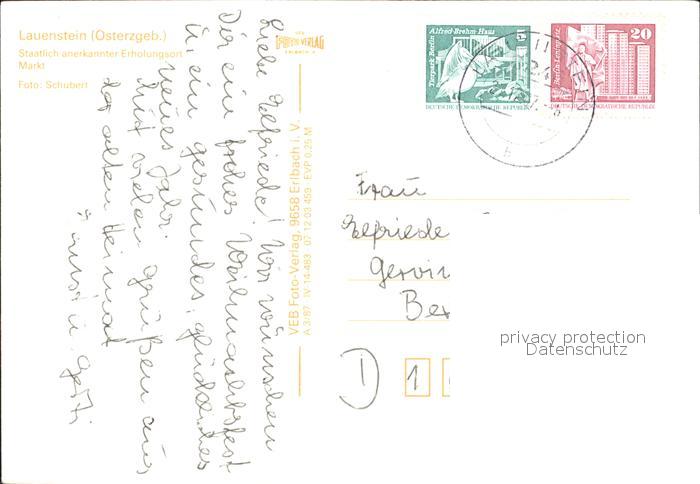 Lauenstein (Osterzgeb.)
Staatlich anerkannter Erholungsort
Markt
Foto: Schubert
Liebe Zelfriede! Wir wünschen
Dir ein frohes Weihnachtsfest
u. ein gesundes, glückliches
neues Jahr.
Mit vielen Grüßen aus
der alten Heimat
VEB
FOTO-VERLAG
ERLBACH
VEB Foto-Verlag, 9658 Erlbach i. V.
A 3/87 IV-14-483 07 12 03 459 EVP 0,25 M
Alfred-Brehm-Haus
Tierpark Berlin
5
DEUTSCHE DEMOKRATISCHE REPUBLIK
Berlin-Leninplatz
20
DEUTSCHE DEMOKRATISCHE REPUBLIK
Frau
Zelfriede
Gervin
Ber
1
privacy protection
Datenschutz